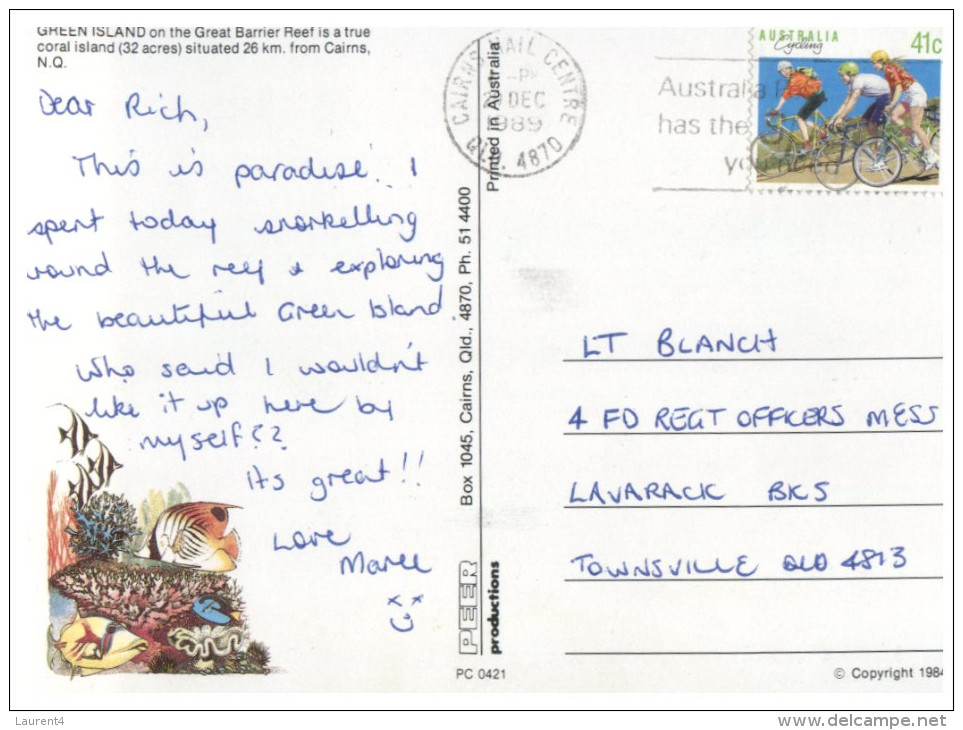 GREEN ISLAND on the Great Barrier Reef is a true
coral island (32 acres) situated 26 km. from Cairns,
N.Q.
Dear Rich,
This is paradise! I
spent today snorkelling
round the reef & exploring
the beautiful Green Island.
Who said I wouldn't
like it up here by
myself??
its great!!
Love
Maree
x x
PC 0421
PEER
productions
Box 1045, Cairns, Qld., 4870, Ph. 51 4400
Printed in Australia
CAIRNS MAIL CENTRE
DEC
1989
QLD. 4870
Australia
has the
AUSTRALIA
Cycling
41c
LT BLANCH
4 FD REGT OFFICERS MESS
LAVARACK BKS
TOWNSVILLE QLD 4813
© Copyright 1984
Laurent4
www.delcampe.net